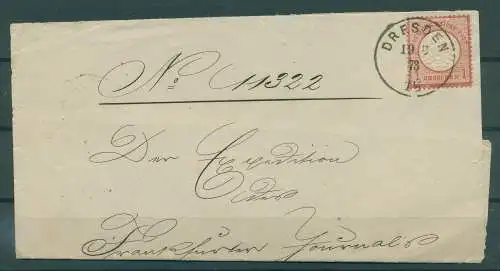 DRESDEN
19 5
73
1 1
No. 11322
Der Expedition
des
Frankfurter Journals